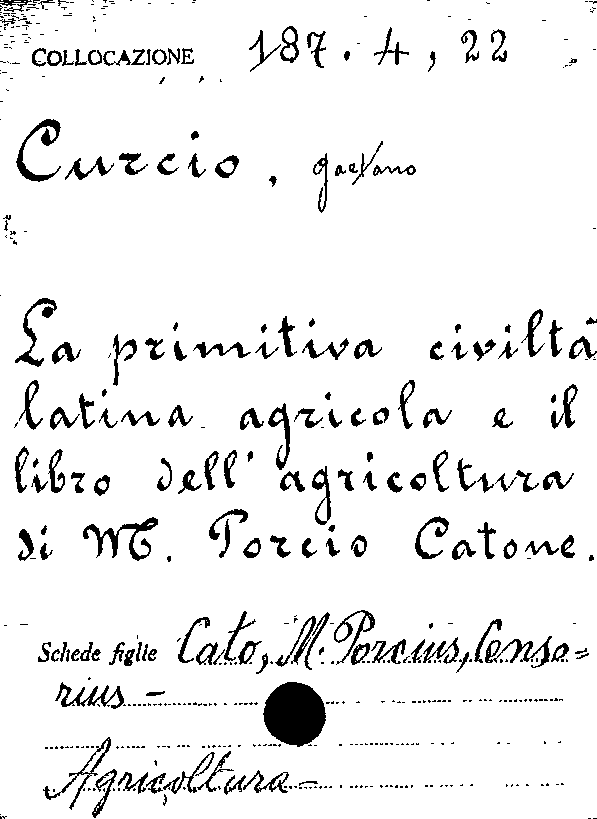 COLLOCAZIONE 187.4,22
Curcio, gaetano
La primitiva civiltà
latina agricola e il
libro dell'agricoltura
di M. Porcio Catone.
Schede figlie Cato, M. Porcius, Censo=
rius –
Agricoltura –